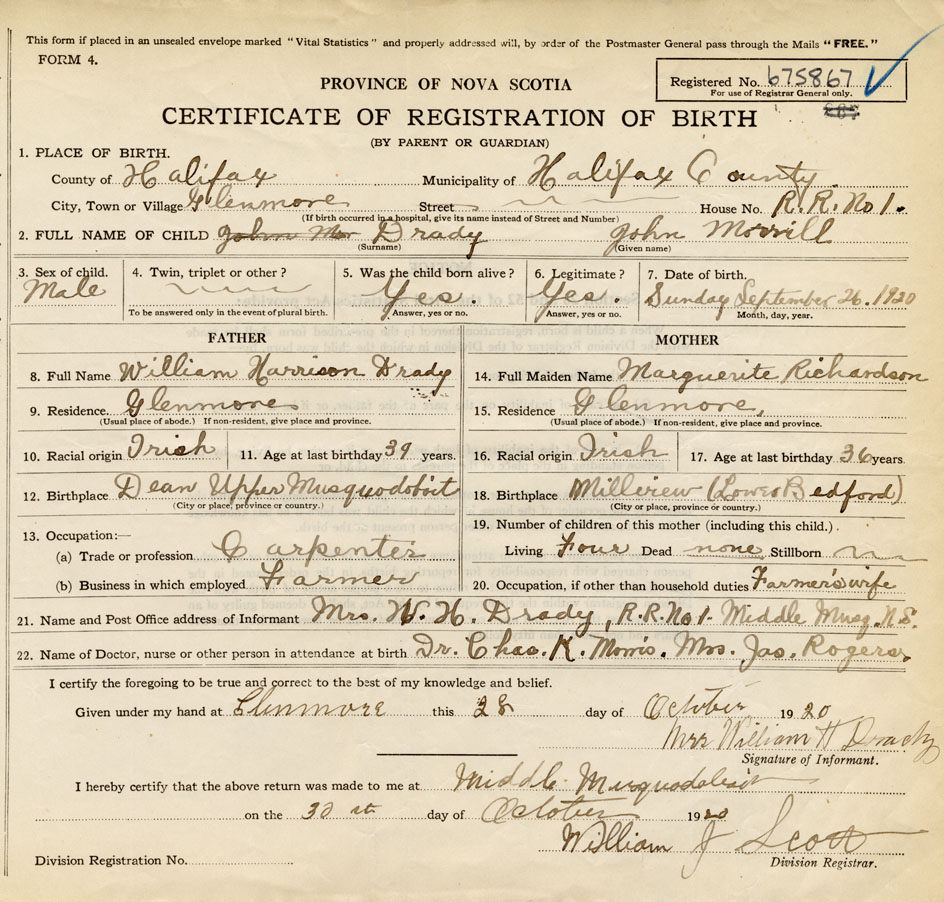 This form if placed in an unsealed envelope marked "Vital Statistics" and properly addressed will, by order of the Postmaster General pass through the Mails "FREE."
FORM 4.
Registered No. 675867
For use of Registrar General only.
PROVINCE OF NOVA SCOTIA
CERTIFICATE OF REGISTRATION OF BIRTH
(BY PARENT OR GUARDIAN)
1. PLACE OF BIRTH.
County of Halifax Municipality of Halifax County
City, Town or Village Glenmore Street House No. R.R. No 1.
(If birth occurred in a hospital, give its name instead of Street and Number)
2. FULL NAME OF CHILD John Mor Drady John Morrill
(Surname) (Given name)
3. Sex of child. 4. Twin, triplet or other? 5. Was the child born alive? 6. Legitimate? 7. Date of birth.
Male Yes. Yes. Sunday September 26. 1920
To be answered only in the event of plural birth. Answer, yes or no. Answer, yes or no. Month, day, year.
FATHER MOTHER
8. Full Name William Harrison Drady 14. Full Maiden Name Marguerite Richardson
9. Residence. Glenmore 15. Residence Glenmore,
(Usual place of abode.) If non-resident, give place and province. (Usual place of abode.) If non-resident, give place and province.
10. Racial origin Irish 11. Age at last birthday 39 years. 16. Racial origin Irish 17. Age at last birthday 36 years.
12. Birthplace Dean Upper Musquodoboit 18. Birthplace Millview (Lower Bedford)
(City or place, province or country.) (City or place, province or country.)
13. Occupation:— 19. Number of children of this mother (including this child.)
(a) Trade or profession Carpenter Living Four Dead none Stillborn
(b) Business in which employed Farmer 20. Occupation, if other than household duties Farmer's wife
21. Name and Post Office address of Informant Mrs. W. H. Drady, R.R. No 1. Middle Musq. N.S.
22. Name of Doctor, nurse or other person in attendance at birth Dr. Chas. K. Morris. Mrs. Jas. Rogers.
I certify the foregoing to be true and correct to the best of my knowledge and belief.
Given under my hand at Glenmore this 28 day of October 1920
Mrs William H Drady
Signature of Informant.
I hereby certify that the above return was made to me at Middle Musquodoboit
on the 30 th day of October 1920
William J Scott
Division Registration No. Division Registrar.